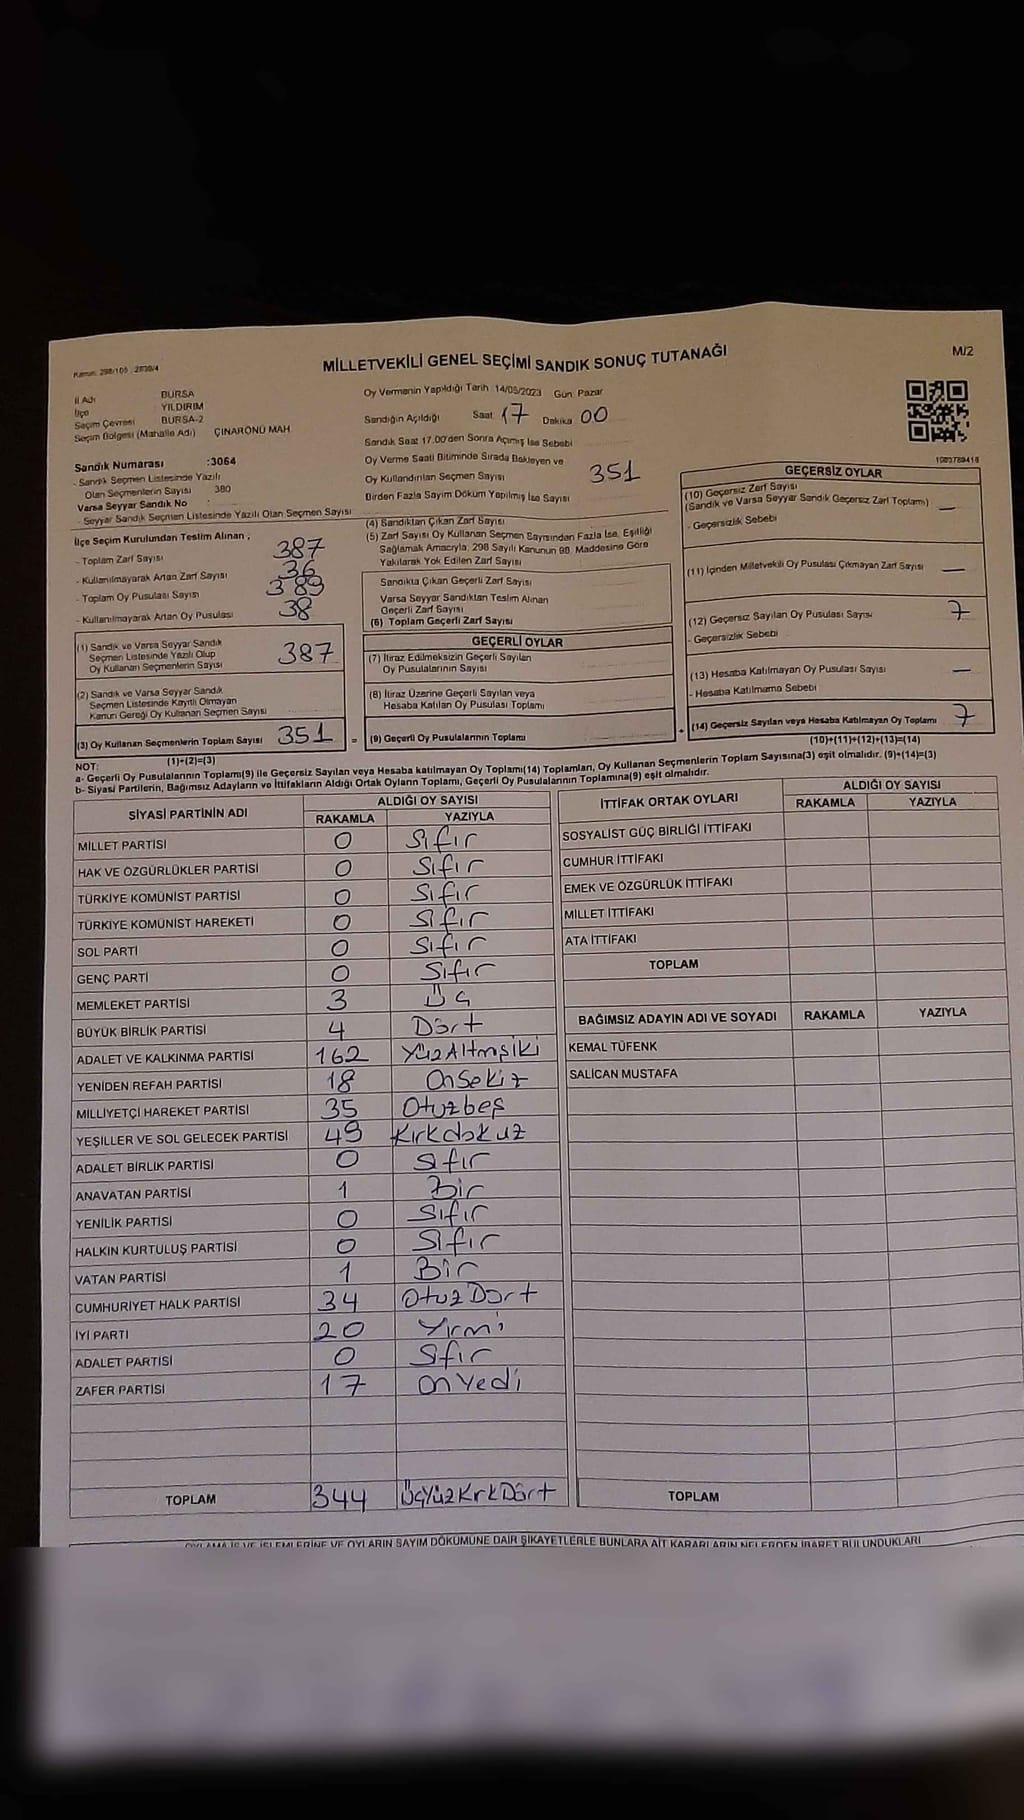 Kanun: 298/105 2839/4
MİLLETVEKİLİ GENEL SEÇİMİ SANDIK SONUÇ TUTANAĞI
M/2
İl Adı BURSA
İlçe YILDIRIM
Seçim Çevresi BURSA-2
Seçim Bölgesi (Mahalle Adı) ÇINARÖNÜ MAH.
Oy Vermenin Yapıldığı Tarih 14/05/2023 Gün Pazar
Sandığın Açıldığı Saat 17 Dakika 00
Sandık Saat 17.00'den Sonra Açımış İse Sebebi
Oy Verme Saati Bitiminde Sırada Bekleyen ve
Oy Kullandırılan Seçmen Sayısı 351
Birden Fazla Sayım Döküm Yapılmış İse Sayısı
1003789418
Sandık Numarası :3064
- Sandık Seçmen Listesinde Yazılı
Olan Seçmenlerin Sayısı 380
Varsa Seyyar Sandık No :
- Seyyar Sandık Seçmen Listesinde Yazılı Olan Seçmen Sayısı
İlçe Seçim Kurulundan Teslim Alınan ;
- Toplam Zarf Sayısı 387
- Kullanılmayarak Artan Zarf Sayısı 36
- Toplam Oy Pusulası Sayısı 389
- Kullanılmayarak Artan Oy Pusulası 38
(1) Sandık ve Varsa Seyyar Sandık
Seçmen Listesinde Yazılı Olup
Oy Kullanan Seçmenlerin Sayısı 387
(2) Sandık ve Varsa Seyyar Sandık
Seçmen Listesinde Kayıtlı Olmayan
Kanun Gereği Oy Kullanan Seçmen Sayısı
(3) Oy Kullanan Seçmenlerin Toplam Sayısı 351
(1)+(2)=(3)
(4) Sandıktan Çıkan Zarf Sayısı
(5) Zarf Sayısı Oy Kullanan Seçmen Sayısından Fazla İse, Eşitliği
Sağlamak Amacıyla, 298 Sayılı Kanunun 98. Maddesine Göre
Yakılarak Yok Edilen Zarf Sayısı
Sandıkta Çıkan Geçerli Zarf Sayısı
Varsa Seyyar Sandıktan Teslim Alınan
Geçerli Zarf Sayısı
(6) Toplam Geçerli Zarf Sayısı
GEÇERLİ OYLAR
(7) İtiraz Edilmeksizin Geçerli Sayılan
Oy Pusulalarının Sayısı
(8) İtiraz Üzerine Geçerli Sayılan veya
Hesaba Katılan Oy Pusulası Toplamı
= (9) Geçerli Oy Pusulalarının Toplamı
GEÇERSİZ OYLAR
(10) Geçersiz Zarf Sayısı
(Sandık ve Varsa Seyyar Sandık Geçersiz Zarf Toplamı) —
- Geçersizlik Sebebi
(11) İçinden Milletvekili Oy Pusulası Çıkmayan Zarf Sayısı —
(12) Geçersiz Sayılan Oy Pusulası Sayısı 7
- Geçersizlik Sebebi
(13) Hesaba Katılmayan Oy Pusulası Sayısı —
- Hesaba Katılmama Sebebi
+ (14) Geçersiz Sayılan veya Hesaba Katılmayan Oy Toplamı 7
(10)+(11)+(12)+(13)=(14)
NOT:
a- Geçerli Oy Pusulalarının Toplamı(9) ile Geçersiz Sayılan veya Hesaba katılmayan Oy Toplamı(14) Toplamları, Oy Kullanan Seçmenlerin Toplam Sayısına(3) eşit olmalıdır. (9)+(14)=(3)
b- Siyasi Partilerin, Bağımsız Adayların ve İttifakların Aldığı Ortak Oyların Toplamı, Geçerli Oy Pusulalarının Toplamına(9) eşit olmalıdır.
SİYASİ PARTİNİN ADI ALDIĞI OY SAYISI
RAKAMLA YAZIYLA
MİLLET PARTİSİ 0 Sıfır
HAK VE ÖZGÜRLÜKLER PARTİSİ 0 Sıfır
TÜRKİYE KOMÜNİST PARTİSİ 0 Sıfır
TÜRKİYE KOMÜNİST HAREKETİ 0 Sıfır
SOL PARTİ 0 Sıfır
GENÇ PARTİ 0 Sıfır
MEMLEKET PARTİSİ 3 Üç
BÜYÜK BİRLİK PARTİSİ 4 Dört
ADALET VE KALKINMA PARTİSİ 162 YüzAltmışiki
YENİDEN REFAH PARTİSİ 18 OnSekiz
MİLLİYETÇİ HAREKET PARTİSİ 35 Otuzbeş
YEŞİLLER VE SOL GELECEK PARTİSİ 49 Kırkdokuz
ADALET BİRLİK PARTİSİ 0 Sıfır
ANAVATAN PARTİSİ 1 Bir
YENİLİK PARTİSİ 0 Sıfır
HALKIN KURTULUŞ PARTİSİ 0 Sıfır
VATAN PARTİSİ 1 Bir
CUMHURİYET HALK PARTİSİ 34 OtuzDört
İYİ PARTİ 20 Yirmi
ADALET PARTİSİ 0 Sıfır
ZAFER PARTİSİ 17 OnYedi
TOPLAM 344 ÜçYüzKırkDört
İTTİFAK ORTAK OYLARI ALDIĞI OY SAYISI
RAKAMLA YAZIYLA
SOSYALİST GÜÇ BİRLİĞİ İTTİFAKI
CUMHUR İTTİFAKI
EMEK VE ÖZGÜRLÜK İTTİFAKI
MİLLET İTTİFAKI
ATA İTTİFAKI
TOPLAM
BAĞIMSIZ ADAYIN ADI VE SOYADI RAKAMLA YAZIYLA
KEMAL TÜFENK
SALİCAN MUSTAFA
TOPLAM
OYLAMA İŞ VE İŞLEMLERİNE VE OYLARIN SAYIM DÖKÜMÜNE DAİR ŞİKAYETLERLE BUNLARA AİT KARARLARIN NELERDEN İBARET BULUNDUKLARI